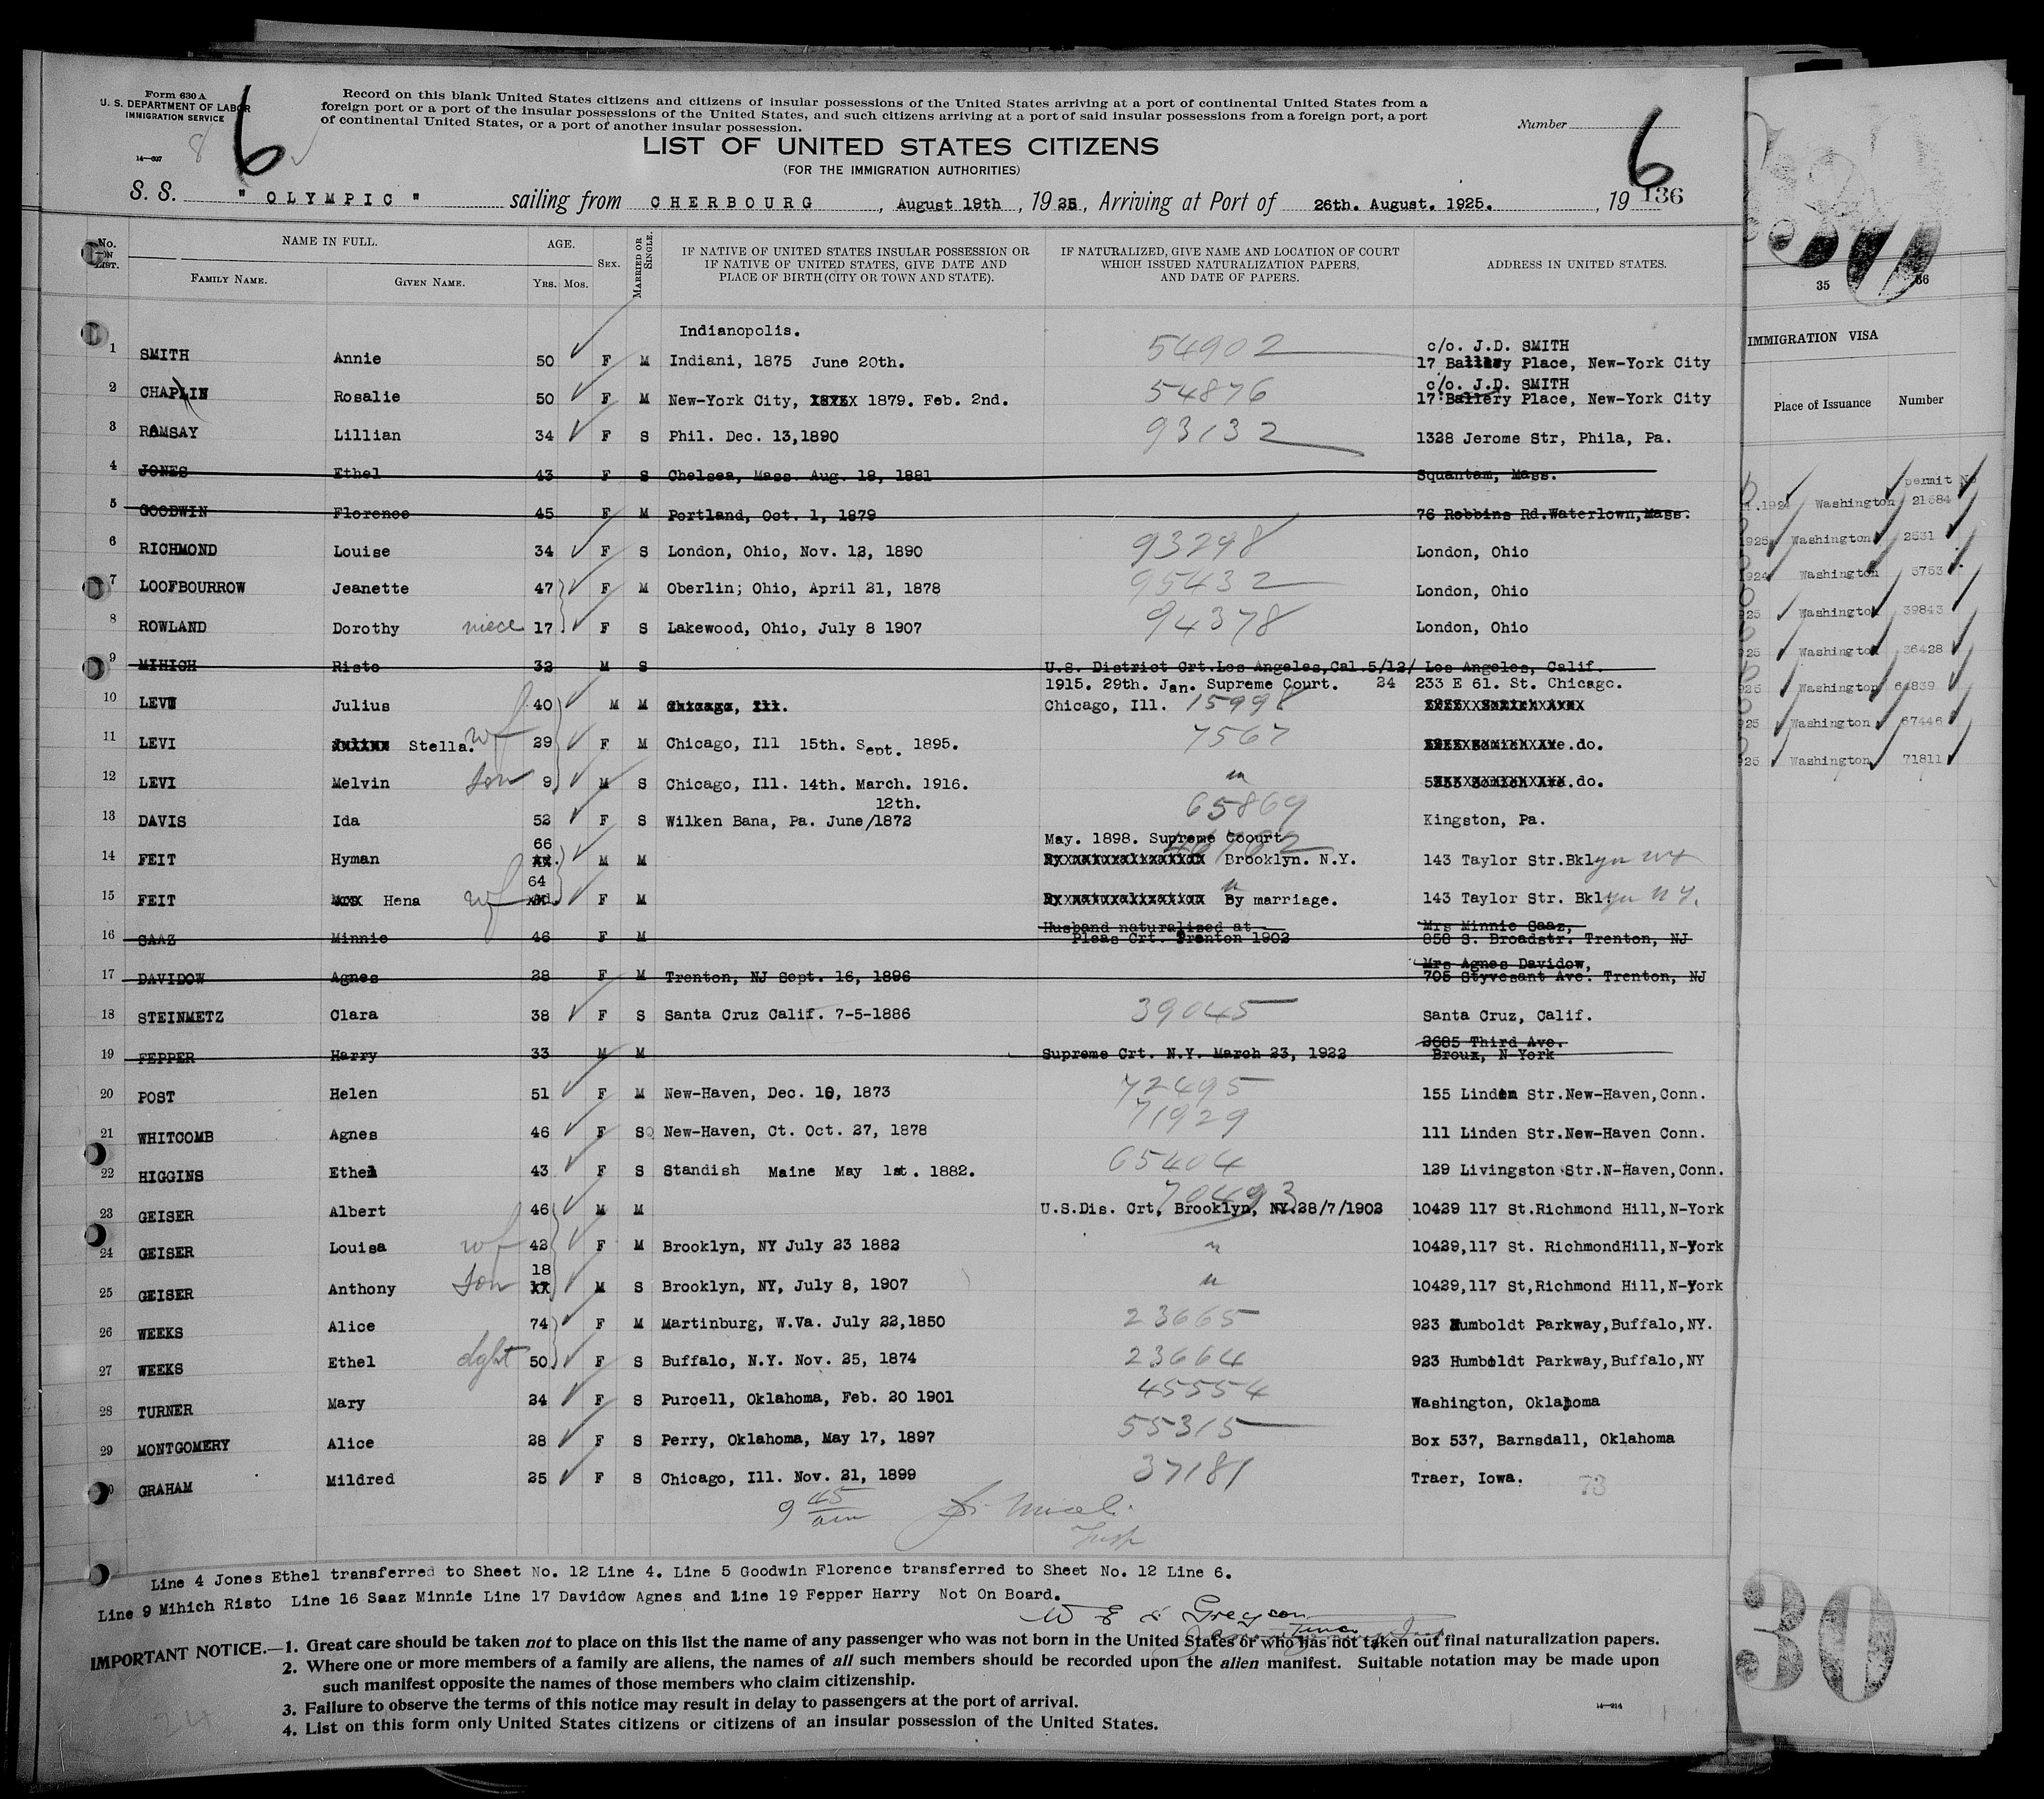 Form 630 A
U. S. DEPARTMENT OF LABOR
IMMIGRATION SERVICE
14—607
8 6
Record on this blank United States citizens and citizens of insular possessions of the United States arriving at a port of continental United States from a
foreign port or a port of the insular possessions of the United States, and such citizens arriving at a port of said insular possessions from a foreign port, a port
of continental United States, or a port of another insular possession.
Number 6
LIST OF UNITED STATES CITIZENS
(FOR THE IMMIGRATION AUTHORITIES)
S. S. "OLYMPIC" sailing from CHERBOURG, August 19th, 1925, Arriving at Port of 26th. August. 1925., 19 136
No. ON LIST. NAME IN FULL. FAMILY NAME. GIVEN NAME. AGE. YRS. MOS. SEX. MARRIED OR SINGLE. IF NATIVE OF UNITED STATES INSULAR POSSESSION OR IF NATIVE OF UNITED STATES, GIVE DATE AND PLACE OF BIRTH (CITY OR TOWN AND STATE). IF NATURALIZED, GIVE NAME AND LOCATION OF COURT WHICH ISSUED NATURALIZATION PAPERS, AND DATE OF PAPERS. ADDRESS IN UNITED STATES.
Indianopolis.
1 SMITH Annie 50 F M Indiani, 1875 June 20th. 54902 c/o. J.D. SMITH 17 Place, New-York City
2 CHAPLIN Rosalie 50 F M New-York City, 1879. Feb. 2nd. 54876 c/o. J.D. SMITH 17 Place, New-York City
3 RAMSAY Lillian 34 F S Phil. Dec. 13,1890 93132 1328 Jerome Str, Phila, Pa.
4 JONES Ethel 43 F S Chelsea, Mass. Aug. 18, 1881 Squantam, Mass.
5 GOODWIN Florence 45 F M Portland, Oct. 1, 1879 76 Robbins Rd.Waterlown,Mass.
6 RICHMOND Louise 34 F S London, Ohio, Nov. 12, 1890 93298 London, Ohio
7 LOOFBOURROW Jeanette 47 F M Oberlin; Ohio, April 21, 1878 95432 London, Ohio
8 ROWLAND Dorothy niece 17 F S Lakewood, Ohio, July 8 1907 94378 London, Ohio
9 MIHICH Risto 32 M S U.S. District Crt.Los Angeles,Cal.5/12/24 Los Angeles, Calif.
10 LEVI Julius 40 M M Chicago, Ill. 1915. 29th. Jan. Supreme Court. Chicago, Ill. 15998 233 E 61. St. Chicago.
11 LEVI Stella. wf 29 F M Chicago, Ill 15th. Sept. 1895. 7567 do.
12 LEVI Melvin son 9 M S Chicago, Ill. 14th. March. 1916. " do.
13 DAVIS Ida 52 F S Wilken Bana, Pa. June/12th. 1872 65869 Kingston, Pa.
14 FEIT Hyman 66 M M May. 1898. Supreme Coourt Brooklyn. N.Y. 143 Taylor Str.Bklyn
15 FEIT Hena wf 64 F M " By marriage. 143 Taylor Str. Bklyn N Y.
16 SAAZ Minnie 46 F M Husband naturalized at Pleas Crt. Trenton 1902 Mrs Minnie Saaz, 858 S. Broadstr. Trenton, NJ
17 DAVIDOW Agnes 28 F M Trenton, NJ Sept. 16, 1896 Mrs Agnes Davidow, 705 Styvesant Ave. Trenton, NJ
18 STEINMETZ Clara 38 F S Santa Cruz Calif. 7-5-1886 39045 Santa Cruz, Calif.
19 FEPPER Harry 33 M M Supreme Crt. N.Y. March 23, 1922 3685 Third Ave. Broux, N-York
20 POST Helen 51 F M New-Haven, Dec. 10, 1873 72495 155 Linden Str.New-Haven,Conn.
21 WHITCOMB Agnes 46 F S New-Haven, Ct. Oct. 27, 1878 71929 111 Linden Str.New-Haven Conn.
22 HIGGINS Ethel 43 F S Standish Maine May 1st. 1882. 65404 129 Livingston Str.N-Haven,Conn.
23 GEISER Albert 46 M M 70493 U.S.Dis. Crt, Brooklyn, NY.28/7/1902 10429 117 St.Richmond Hill,N-York
24 GEISER Louisa wf 42 F M Brooklyn, NY July 23 1882 " 10429,117 St. RichmondHill,N-York
25 GEISER Anthony son 18 M S Brooklyn, NY, July 8, 1907 " 10429,117 St,Richmond Hill,N-York
26 WEEKS Alice 74 F M Martinburg, W.Va. July 22,1850 23665 923 Humboldt Parkway,Buffalo,NY.
27 WEEKS Ethel dght 50 F S Buffalo, N.Y. Nov. 25, 1874 23664 923 Humboldt Parkway,Buffalo,NY
28 TURNER Mary 24 F S Purcell, Oklahoma, Feb. 20 1901 45554 Washington, Oklahoma
29 MONTGOMERY Alice 28 F S Perry, Oklahoma, May 17, 1897 55315 Box 537, Barnsdall, Oklahoma
GRAHAM Mildred 25 F S Chicago, Ill. Nov. 21, 1899 37181 Traer, Iowa.
73
9 45 am
Insp
Line 4 Jones Ethel transferred to Sheet No. 12 Line 4. Line 5 Goodwin Florence transferred to Sheet No. 12 Line 6.
Line 9 Mihich Risto Line 16 Saaz Minnie Line 17 Davidow Agnes and Line 19 Fepper Harry Not On Board.
IMPORTANT NOTICE.—1. Great care should be taken not to place on this list the name of any passenger who was not born in the United States or who has not taken out final naturalization papers.
2. Where one or more members of a family are aliens, the names of all such members should be recorded upon the alien manifest. Suitable notation may be made upon
such manifest opposite the names of those members who claim citizenship.
3. Failure to observe the terms of this notice may result in delay to passengers at the port of arrival.
4. List on this form only United States citizens or citizens of an insular possession of the United States.
14—214
24
35 36
IMMIGRATION VISA
Place of Issuance Number
permit No
1924 Washington 21584
1925 Washington 2531
1924 Washington 5753
25 Washington 39843
25 Washington 36428
925 Washington 64839
925 Washington 67446
925 Washington 71811
30